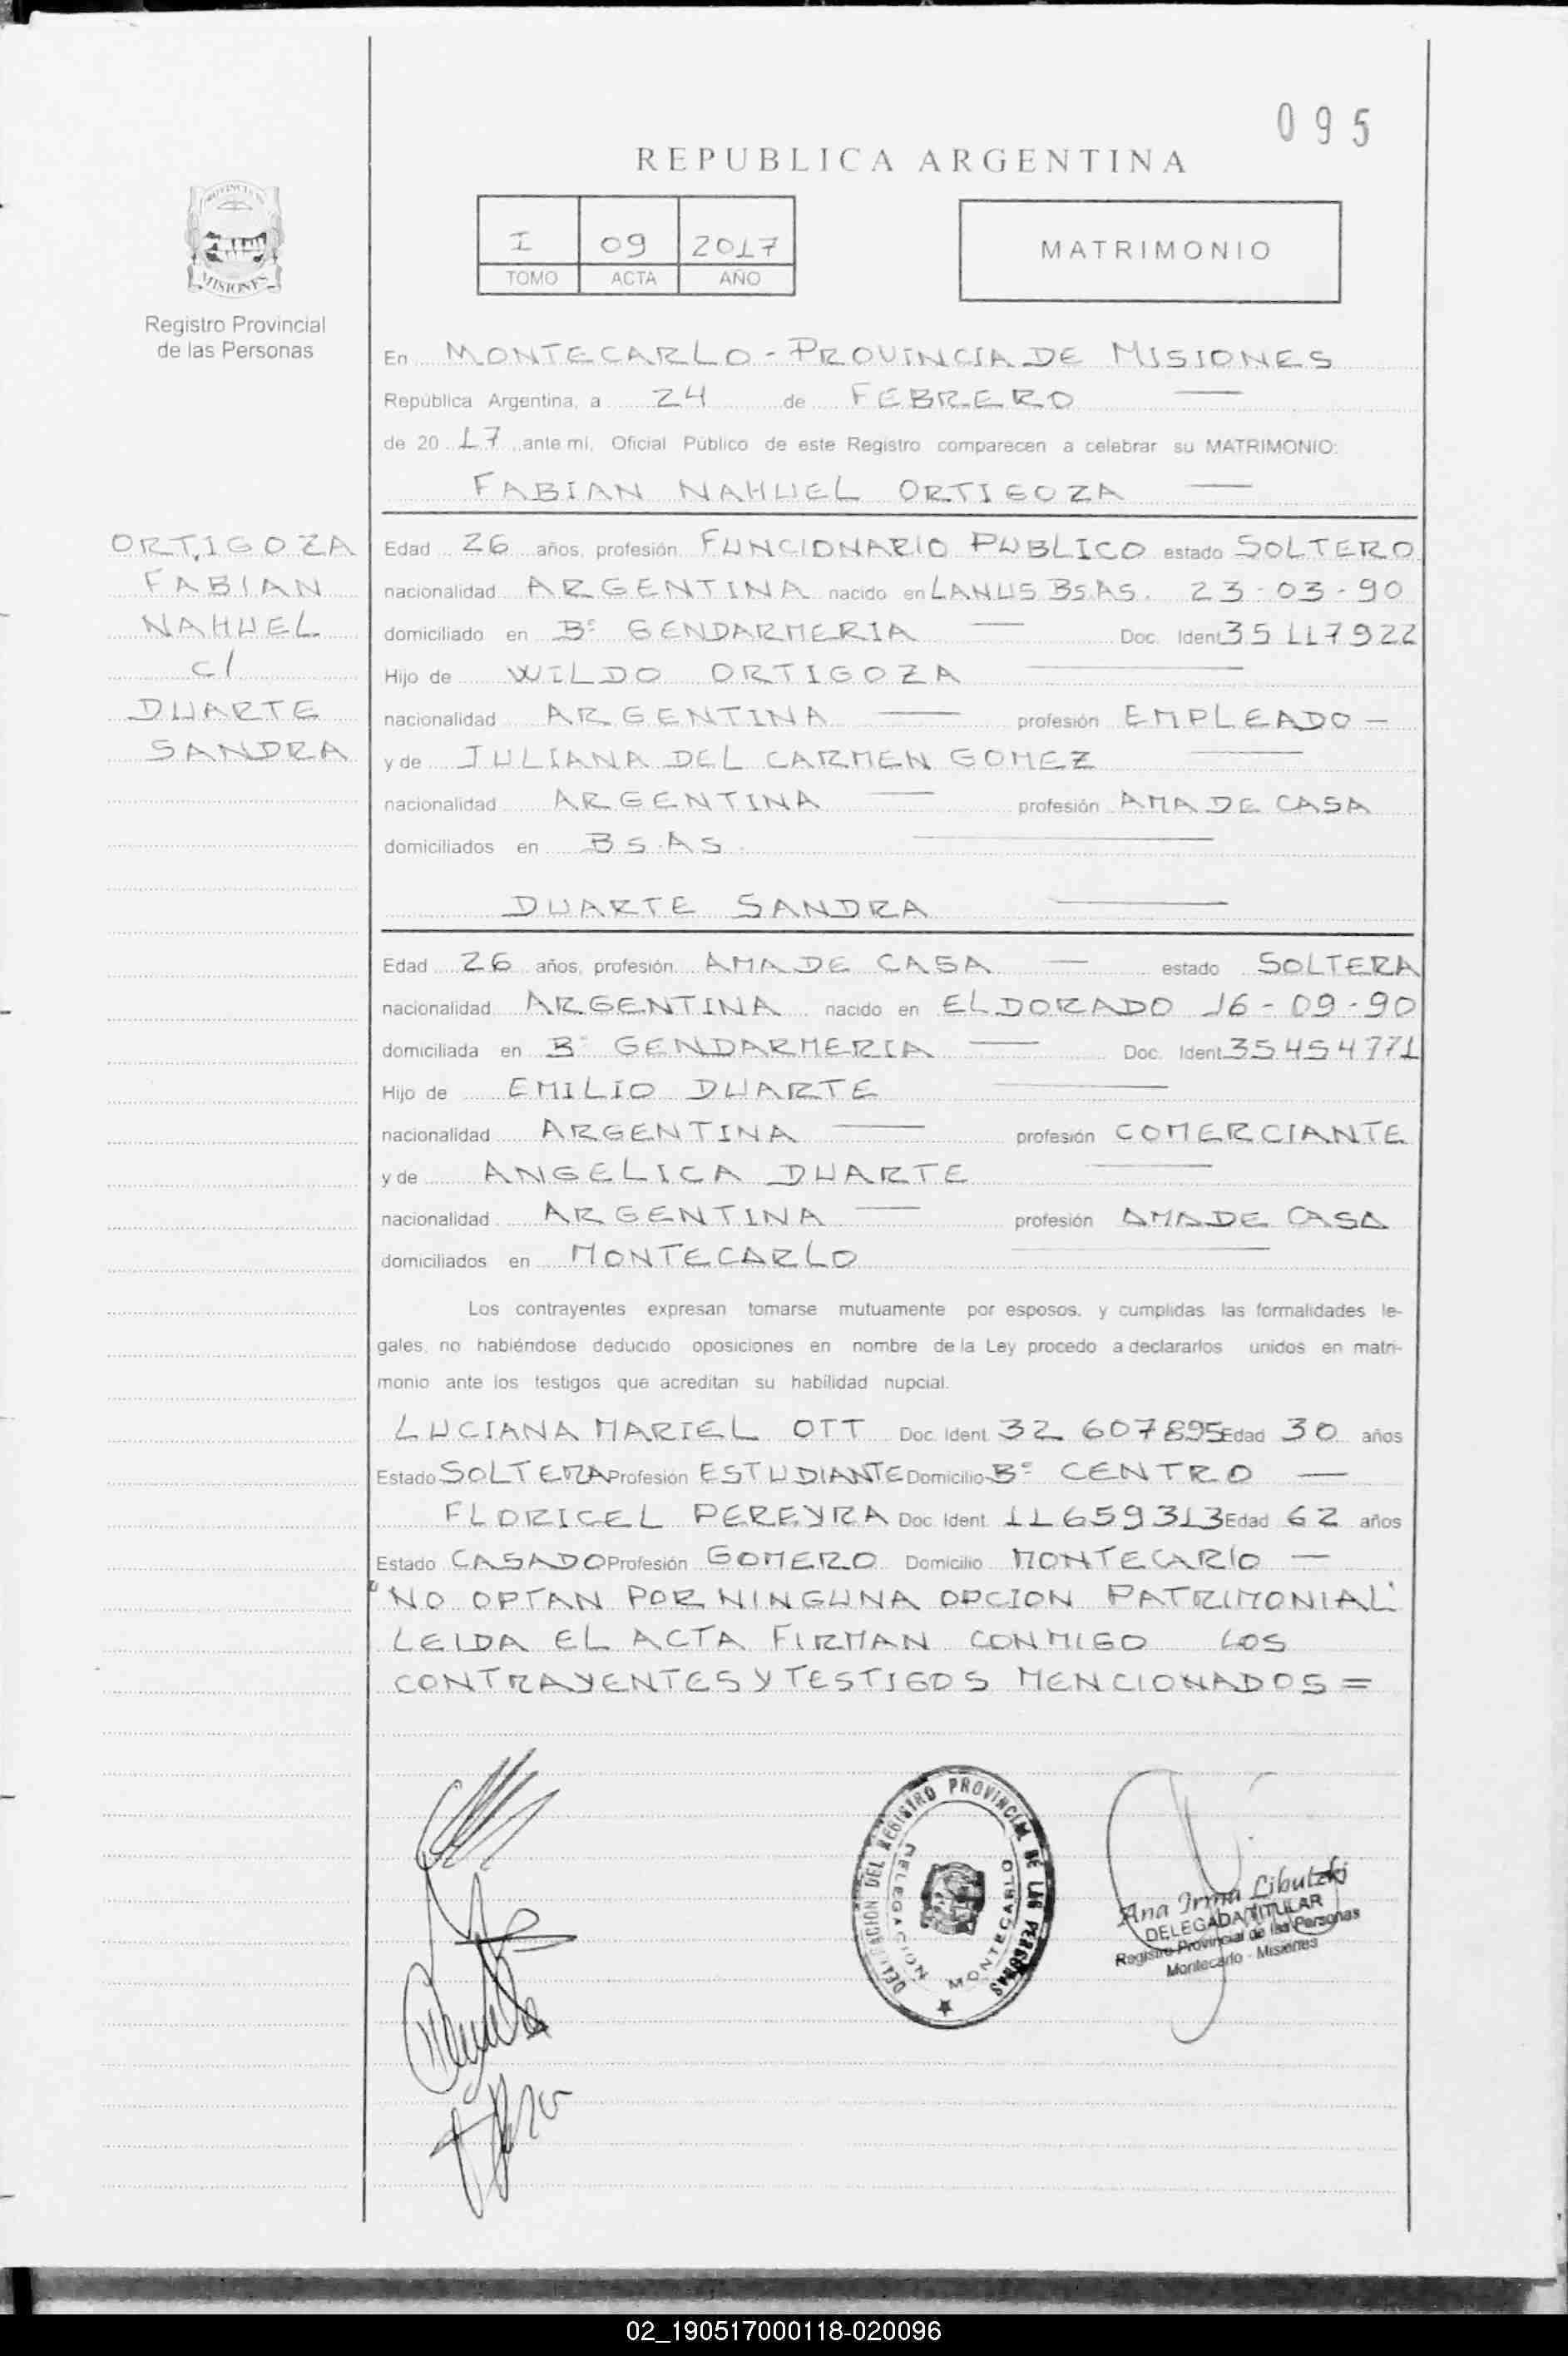 095
REPUBLICA ARGENTINA
I 09 2017
TOMO ACTA AÑO
MATRIMONIO
MISIONES
Registro Provincial
de las Personas
En MONTECARLO - PROVINCIA DE MISIONES
República Argentina, a 24 de FEBRERO
de 20 17 ante mi, Oficial Público de este Registro comparecen a celebrar su MATRIMONIO:
FABIAN NAHUEL ORTIGOZA
ORTIGOZA
FABIAN
NAHUEL
C/
DUARTE
SANDRA
Edad 26 años, profesión FUNCIONARIO PUBLICO estado SOLTERO
nacionalidad ARGENTINA nacido en LANUS BS.AS. 23-03-90
domiciliado en Bº GENDARMERIA Doc. Ident 35 117922
Hijo de WILDO ORTIGOZA
nacionalidad ARGENTINA profesión EMPLEADO -
y de JULIANA DEL CARMEN GOMEZ
nacionalidad ARGENTINA profesión AMA DE CASA
domiciliados en BS.AS.
DUARTE SANDRA
Edad 26 años, profesión AMA DE CASA estado SOLTERA
nacionalidad ARGENTINA nacido en ELDORADO 16-09-90
domiciliada en Bº GENDARMERIA Doc. Ident 35454771
Hijo de EMILIO DUARTE
nacionalidad ARGENTINA profesión COMERCIANTE
y de ANGELICA DUARTE
nacionalidad ARGENTINA profesión AMA DE CASA
domiciliados en MONTECARLO
Los contrayentes expresan tomarse mutuamente por esposos, y cumplidas las formalidades le-
gales, no habiéndose deducido oposiciones en nombre de la Ley procedo a declararlos unidos en matri-
monio ante los testigos que acreditan su habilidad nupcial.
LUCIANA MARIEL OTT Doc. Ident. 32 607895 Edad 30 años
Estado SOLTERA Profesión ESTUDIANTE Domicilio Bº CENTRO
FLORICEL PEREYRA Doc. Ident. 11659313 Edad 62 años
Estado CASADO Profesión GOMERO Domicilio MONTECARLO
"NO OPTAN POR NINGUNA OPCION PATRIMONIAL"
LEIDA EL ACTA FIRMAN CONMIGO LOS
CONTRAYENTES Y TESTIGOS MENCIONADOS =
DELEGACION DEL REGISTRO PROVINCIAL DE LAS PERSONAS
DELEGACION MONTECARLO
Ana Irma Libutzki
DELEGADA TITULAR
Registro Provincial de las Personas
Montecarlo - Misiones
02_190517000118-020096